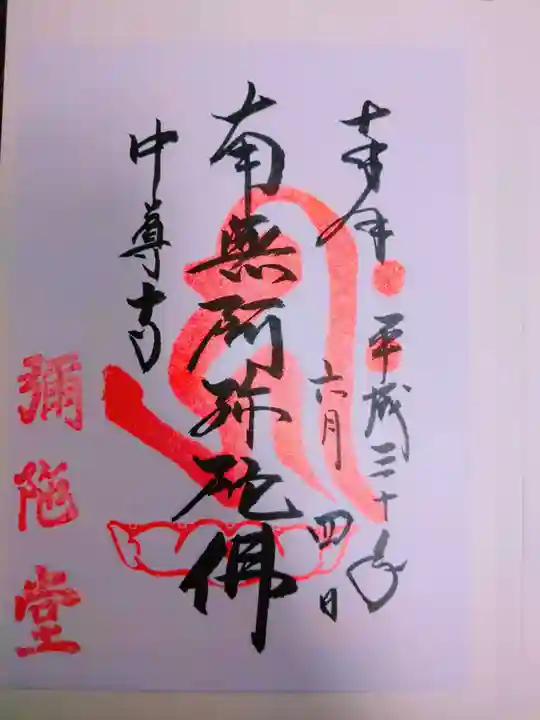 奉拝 平成三十年
六月四日
南無阿弥陀佛
中尊寺
彌陀堂